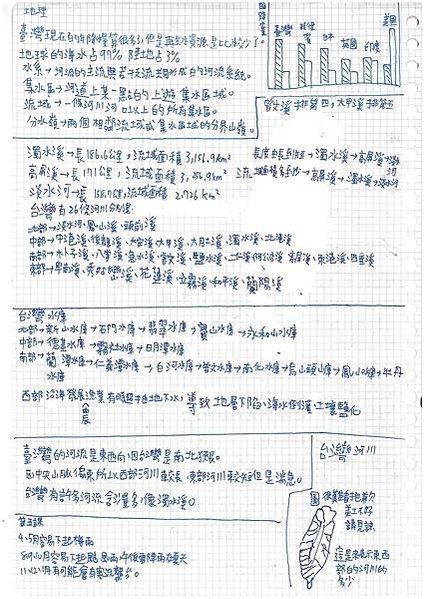 地理
臺灣現在的年降雨量雖很多,但是再生水資源是比較少了。
地球的海水占97% 陸地占3%
水系→河流的主流與支流共同形成的河流系統。
集水區→河道上某一點的上游集水區域。
流域→一條河川河口以上的所有集水區。
分水嶺→兩個相鄰流域或集水區域的分界山嶺。
臺灣 菲律賓 日本 英國 印度 美國
曾文溪排第四,大甲溪排第五
濁水溪→長186.6公里,流域面積3,156.9km²
長度由長到短→濁水溪→高屏溪→淡水河
高屏溪→長171公里,流域面積3,256.9km²
流域面積多到少→高屏溪→濁水溪→淡水河
淡水河→長158.7公里,流域面積2,726km²
台灣有26條河川
北部→淡水河、鳳山溪、頭前溪
中部→中港溪、後龍溪、大安溪、大甲溪、大肚溪、濁水溪、北港溪
南部→朴子溪、八掌溪、急水溪、曾文溪、鹽水溪、二仁溪、阿公店溪、高屏溪、東港溪、四重溪
東部→卑南溪、秀姑巒溪、花蓮溪、立霧溪、和平溪、蘭陽溪
台灣水庫
北部→新山水庫→石門水庫→翡翠水庫→寶山水庫→永和山水庫
中部→德基水庫→霧社水庫→日月潭水庫
南部→蘭潭水庫→仁義潭水庫→白河水庫→曾文水庫→南化水庫→烏山頭水庫→鳳山水庫→牡丹水庫
西部沿海發展漁業有時超抽地下水,導致地層下陷、海水倒灌、土壤鹽化
臺灣的河流是東西向,因台灣是南北狹長。
因中央山脈偏東所以西部河川較長、東部河川較短但是湍急。
台灣有許多河流含沙量多,像濁水溪。
台灣河川
第五課
4、5月容易下起梅雨
圖很醜
請見諒
這是表示東西部的河川的多少